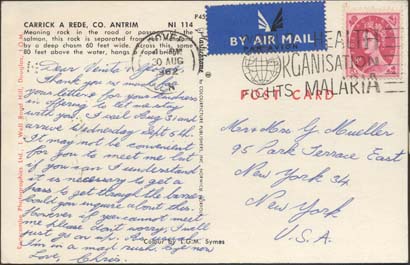 CARRICK A REDE, CO. ANTRIM NI 114
Meaning rock in the road or
salmon, this rock is separated from
by a deep chasm 60 feet wide. Across this, some
80 feet above the water, hangs a
BY AIR MAIL
PAR AVION
30 AUG
1962
HEALTH
ORGANISATION
FIGHTS MALARIA
POST CARD
Thank you so much for
your letter & for your kindness
in offering to let me stay
with you. I sail Aug 31 and
arrive Wednesday Sept 5th.
It may not be convenient
for you to meet me but
if you can I understand
it is necessary to get a
pass to get through the barrier.
Could you inquire about this.
However if you cannot meet
me please don't worry, I will
just go on up.
I'm in a mad rush, bye now
Love, Chris.
Mr & Mrs G Mueller
95 Park Terrace East
New York 34
New York
U.S.A.
Colour by E.G.M. Symes